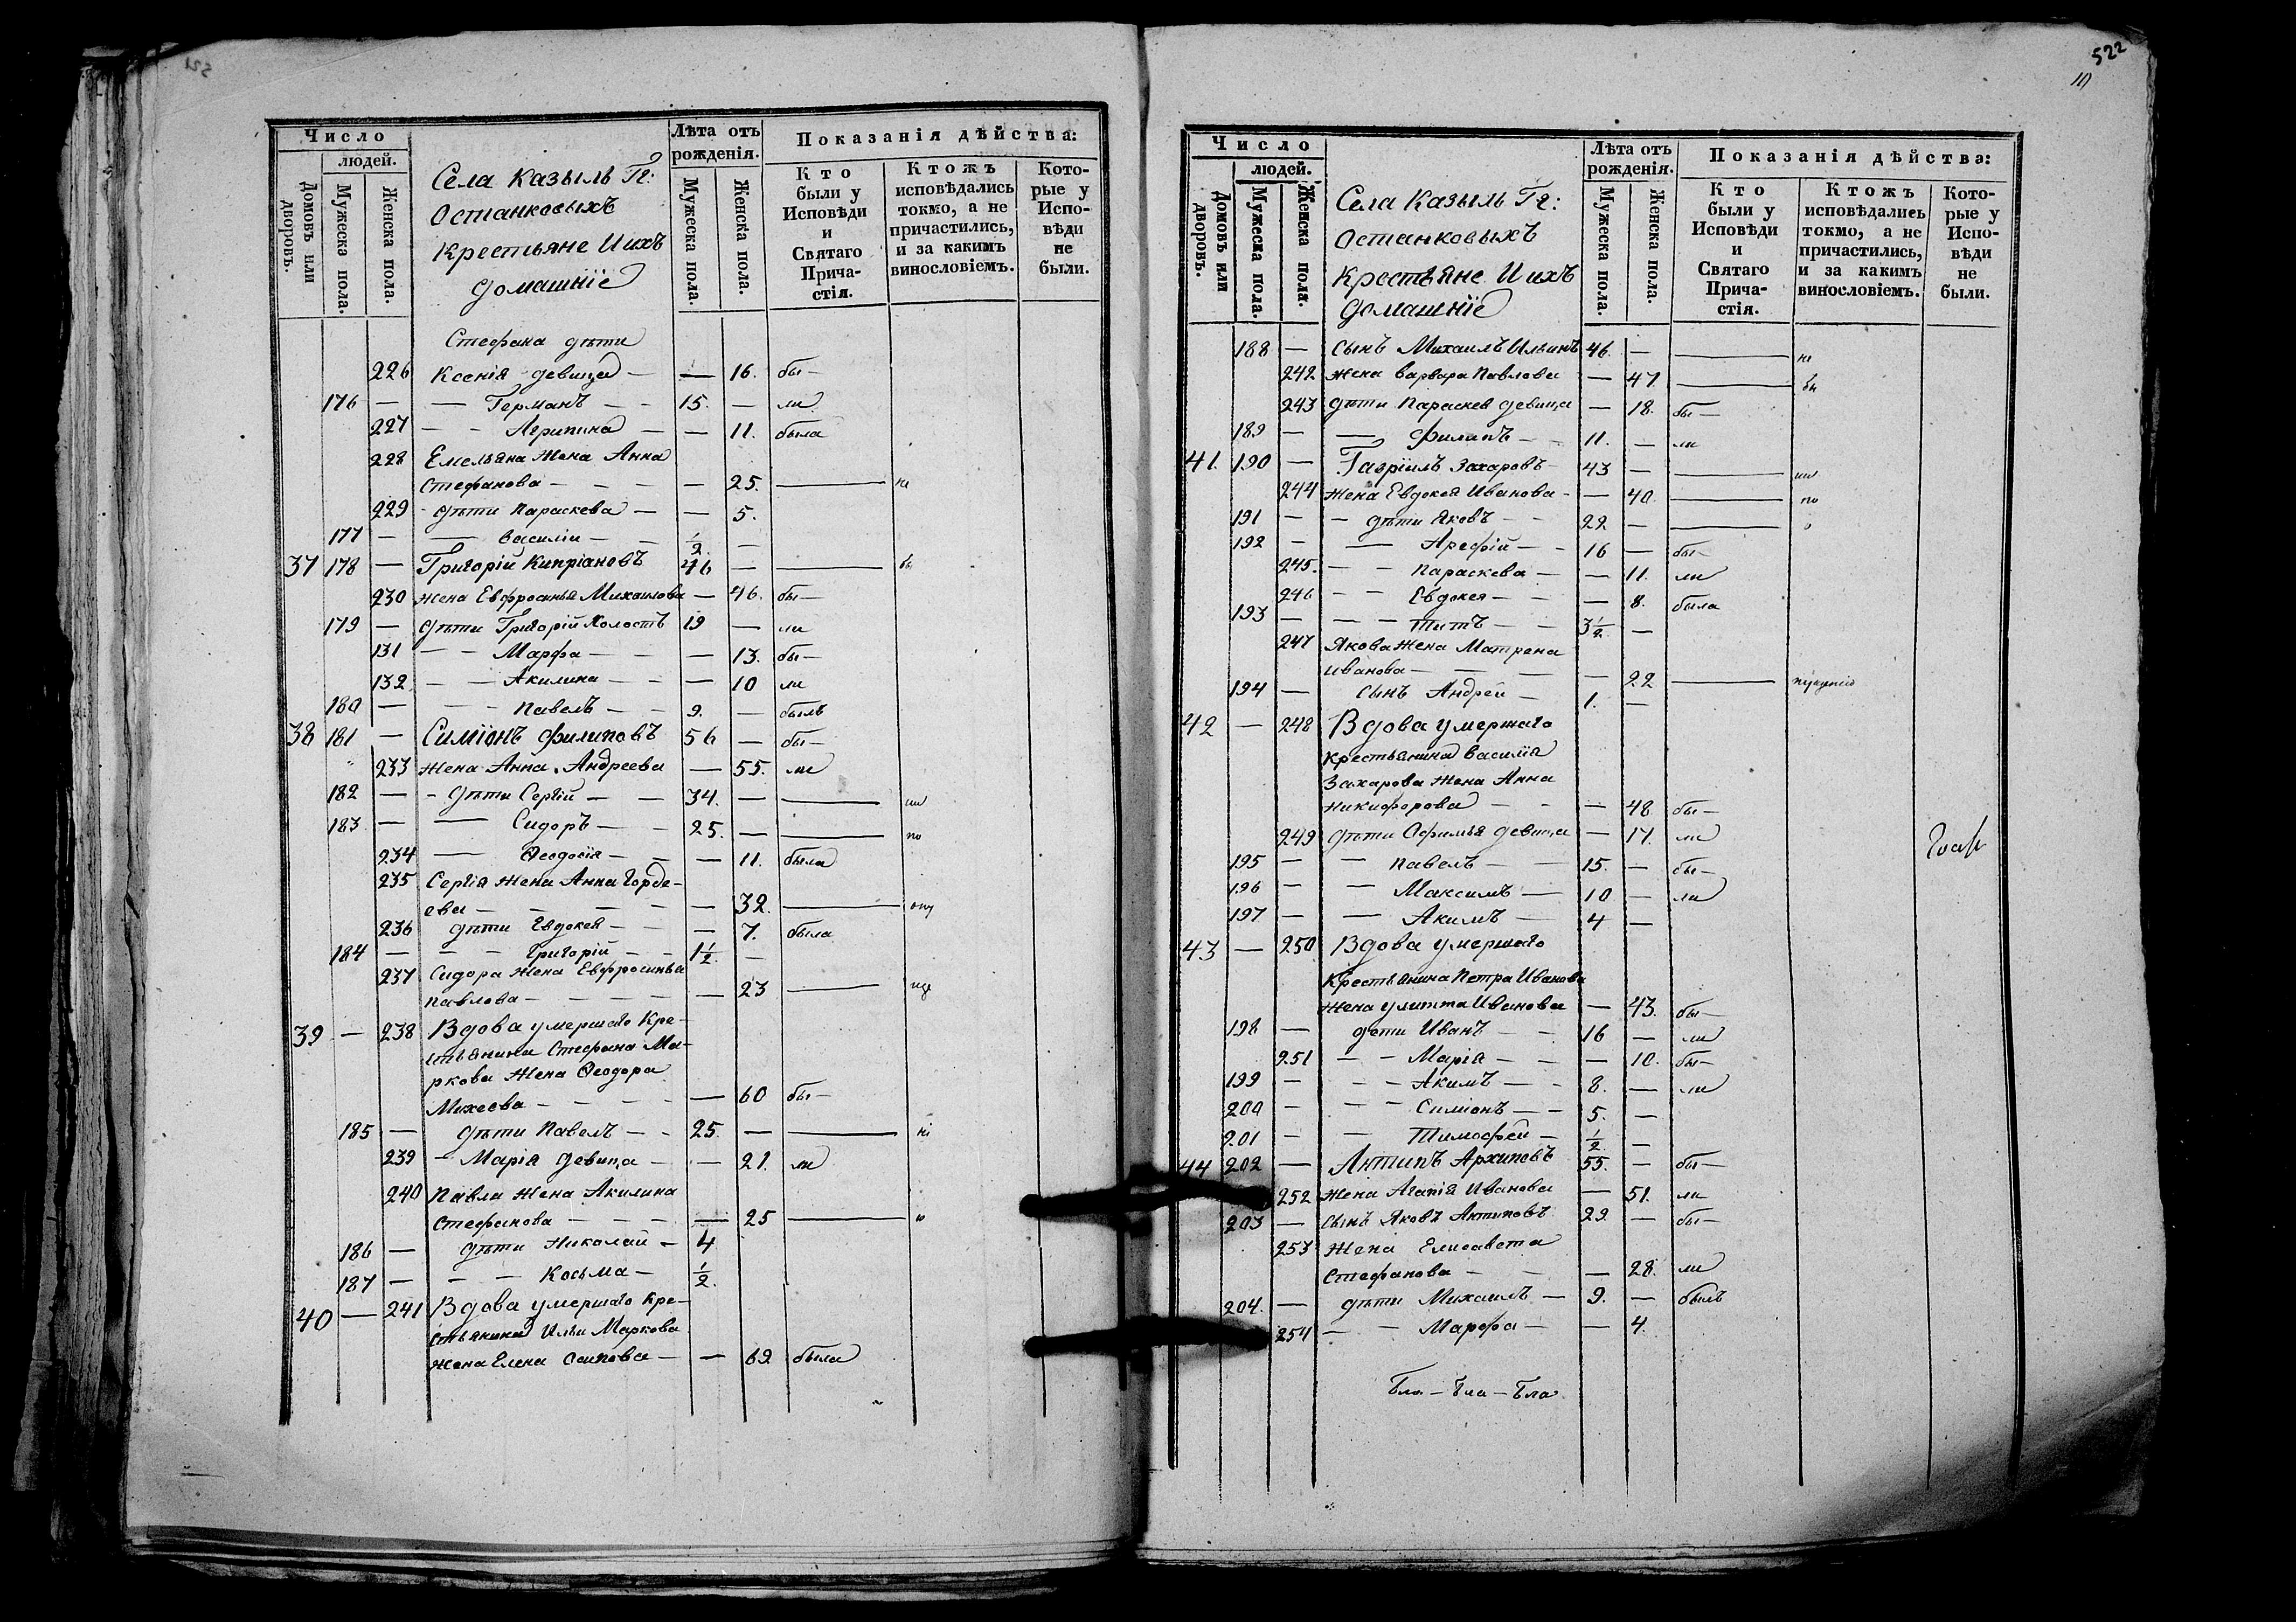 521
Число
людей.
Домовъ или дворовъ.
Мужеска пола.
Женска пола.
Села Казыль Гг:
Останковыхъ
Крестьяне И ихъ
домашніе
Лѣта отъ
рожденія.
Мужеска пола.
Женска пола.
Показанія дѣйства:
Кто
были у
Исповѣди
и
Святаго
Прича-
стія.
Ктожъ
исповѣдались
токмо, а не
причастились,
и за какимъ
винословіемъ.
Кото-
рые у
Испо-
вѣди
не
были.
Стефана дѣти
226 Ксенія девица — — 16. бы—
176 — — Германъ — — 15. — ли
227 — — Агрипина — — 11. была
228 Емельяна Жена Анна
Стефанова — — — — — 25. — не
229 - дѣти Параскева — — 5.
177 — — Василіи — — 1/2. —
37 178 — Григорій Кипріановъ 46 — — бы
230 жена Евфросинья Михаилова — 46. бы—
179 — дѣти Григорій Холостъ 19 — ли
131 — — Марфа — — — 13. бы—
132 — — Акилина — — — 10 ли
180 — — — Павелъ — — 9. — былъ
38 181 — Симіонъ Филиповъ 56 — бы—
233 жена Анна Андреева — 55. ли
182 — - дѣти Сергій — — 34. — —
183 — — Сидоръ — — 25. — — по
234 — Ѳеодосія — — — 11. была
235 Сергія жена Анна Горде-
ева — — — — — — 32. —
236 дѣти Евдокея — — — 7. была
184 — — — Григорій — — 1 1/2. —
237 Сидора жена Евфросинья
Павлова — — — — — 23 —
39 — 238 Вдова умершаго Кре-
стьянина Стефана Ма-
ркова Жена Ѳеодора
Михеева — — — — — 60 бы—
185 — дѣти Павелъ — - 25. — —
239 — Марія девица — — 21. ли
240 Павла жена Акилина
Стефанова — — — — 25 —
186 — дѣти Николай — 4
187 — — — Косьма — 1/2.
40 — 241 Вдова умершаго Кре-
стьянина Ильи Маркова
жена Елена Осипова — — 69 была
522
10
Число
людей.
Домовъ или дворовъ.
Мужеска пола.
Женска пола.
Села Казыль Гг:
Останковыхъ
Крестьяне И ихъ
домашніе
Лѣта отъ
рожденія.
Мужеска пола.
Женска пола.
Показанія дѣйства:
Кто
были у
Исповѣди
и
Святаго
Прича-
стія.
Ктожъ
исповѣдались
токмо, а не
причастились,
и за какимъ
винословіемъ.
Кото-
рые у
Испо-
вѣди
не
были.
188 — Сынъ Михаилъ Ильинъ 46. — — не
242 жена Варвара Павлова — 47. — бы
243 дѣти Параскев девица — 18. бы—
189 — — Филипъ — 11. — ли
41. 190 — Гавріилъ Захаровъ 43 — —
244 жена Евдокея Иванова - — 40. — по
191 — — дѣти Яковъ — - 22 — —
192 — — Арефій — - 16 — бы—
245. — — Параскева — — 11. ли
246 — — Евдокея — — — 8. была
193 — — — Титъ — — 3 1/2. —
247 Якова жена Матрена
Иванова — — — — 22 —
194 — сынъ Андрей — 1. —
42 — 248 Вдова умершаго
крестьянина Василія
Захарова жена Анна
Никифорова — - — 48 бы—
249 дѣти Афимья девица — 17. ли
195 — — Павелъ — 15. — бы—
196 — — Максимъ — 10 — ли
197 — — Акимъ — 4 —
43 — 250 Вдова умершаго
Крестьянина Петра Иванова
Жена улитта Иванова — 43. бы—
198 — дети Иванъ — 16 — ли
251 — — Марія — — — 10. бы—
199 — — — Акимъ — - 8. — ли
200 — — — Симіонъ — — 5. —
201 — — Тимофей — 1/2. —
44 202 — Антипъ Архиповъ 55. — бы—
252 жена Агапія Иванова — 51. ли
203 — сынъ Яковъ Антиповъ 29. — бы—
253 жена Елисавета
Стефанова — — — 28. ли
204. — дѣти Михаилъ — 9. — былъ
254 — — Марфа — — 4.